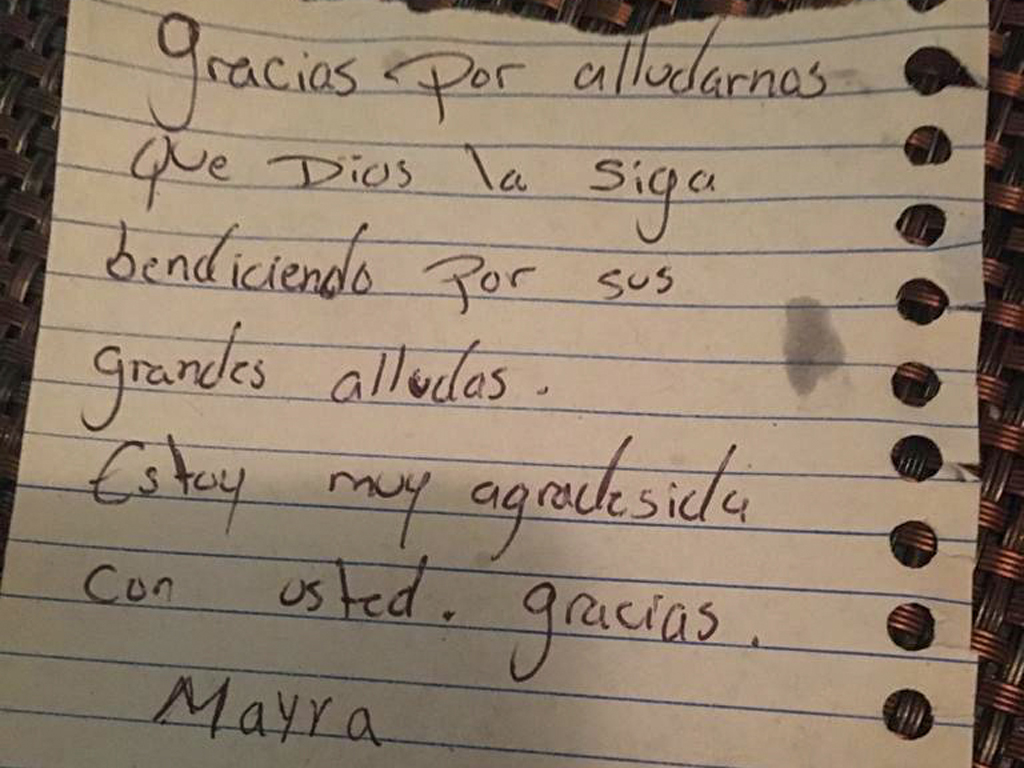 gracias por alludarnos
que Dios la siga
bendiciendo por sus
grandes alludas.
Estoy muy agradesida
con usted. gracias.
Mayra